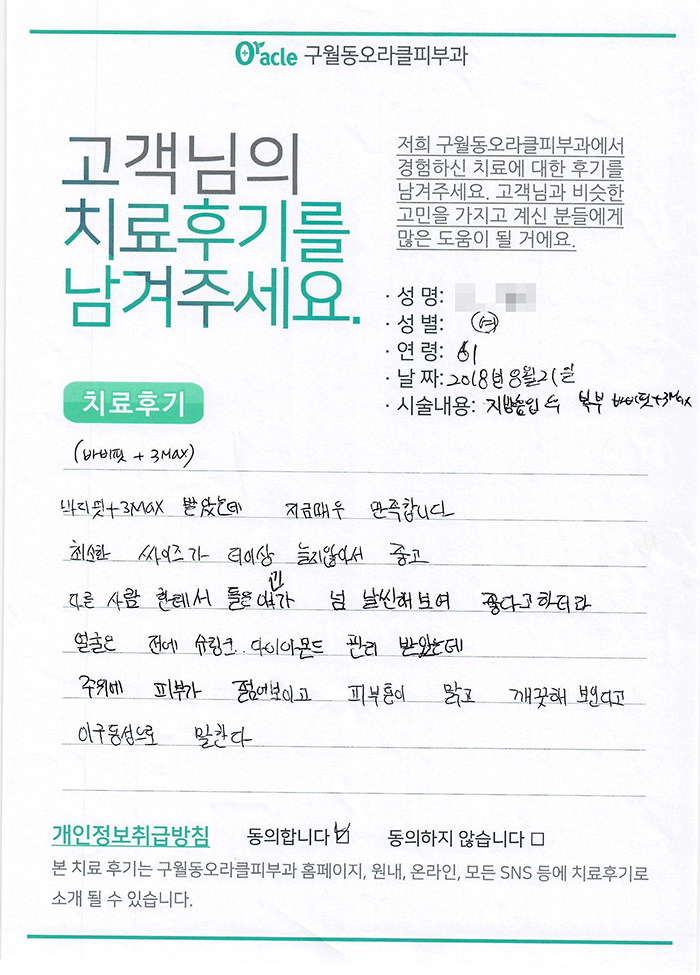 Oracle 구월동오라클피부과
고객님의
치료후기를
남겨주세요.
저희 구월동오라클피부과에서
경험하신 치료에 대한 후기를
남겨주세요. 고객님과 비슷한
고민을 가지고 계신 분들에게
많은 도움이 될 거에요.
· 성 명:
· 성 별: (여)
· 연 령: 61
· 날 짜: 2018년 8월 21일
· 시술내용: 지방흡입 후 복부 바비핏+3Max
치료후기
(바비핏 + 3MAX)
바디핏+3MAX 받았는데 지금매우 만족합니다
최소한 싸이즈가 더이상 늘지않아서 좋고
다른 사람 한테서 들은 얘기가 넘 날씬해보여 좋다고하더라
얼굴은 전에 슈링크. 다이아몬드 관리 받았는데
주위에 피부가 젊어보이고 피부톤이 맑고 깨끗해 보인다고
이구동성으로 말한다
개인정보취급방침 동의합니다 ☑ 동의하지 않습니다 □
본 치료 후기는 구월동오라클피부과 홈페이지, 원내, 온라인, 모든 SNS 등에 치료후기로
소개 될 수 있습니다.